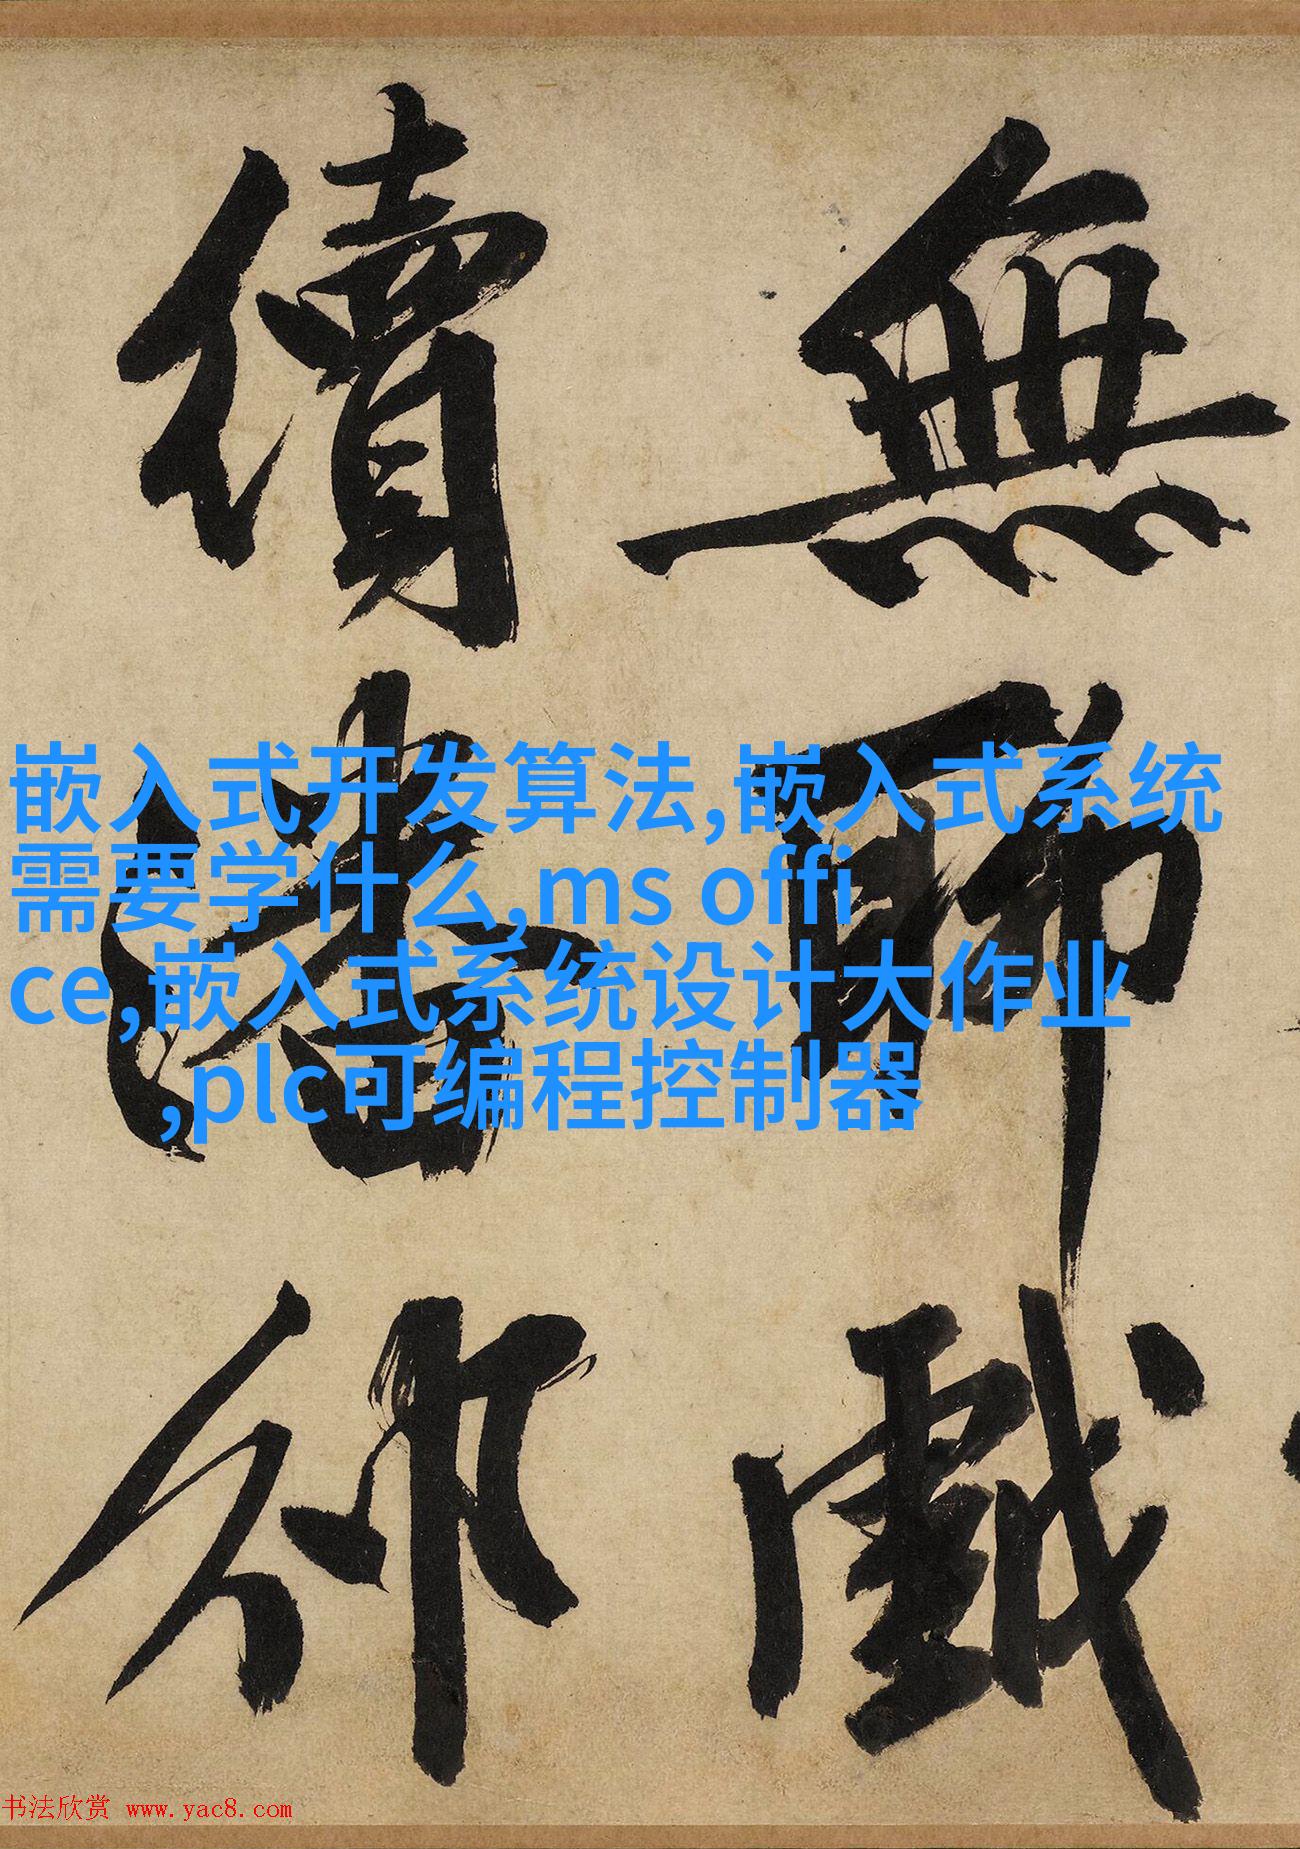 無聊戲
續
嵌入式开发算法,嵌入式系统
需要学什么,ms offi
ce,嵌入式系统设计大作业
,plc可编程控制器
书法欣赏 www.yac8.com